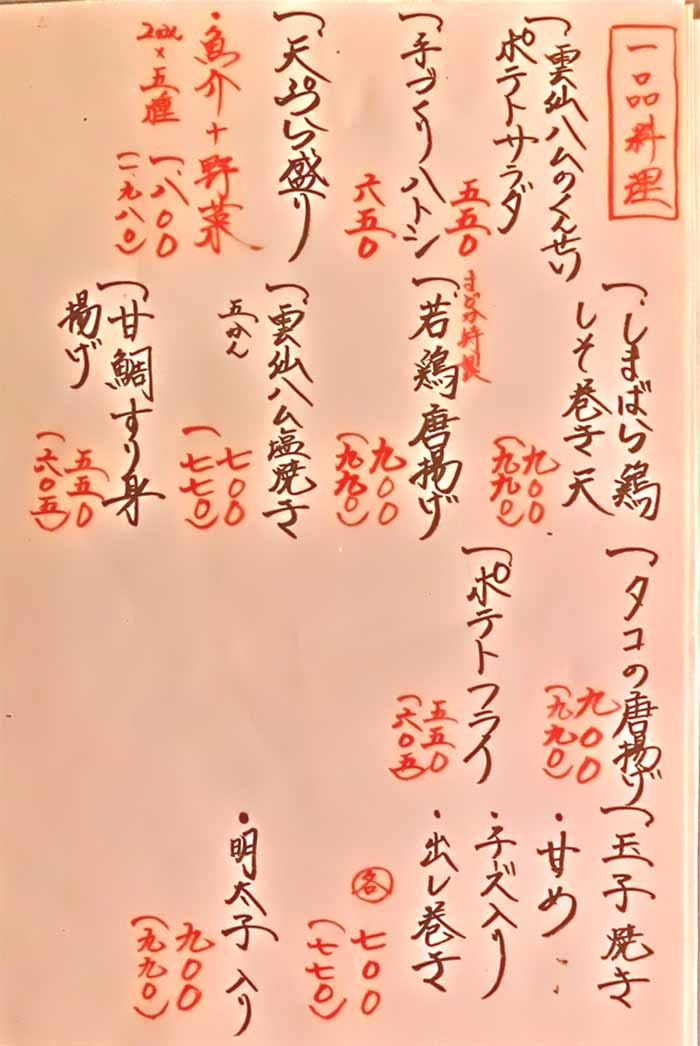 一品料理
一、雲仙ハムのくんせい
ポテトサラダ
五五〇
一、手づくりハトシ
六五〇
一、天ぷら盛り
・魚介+野菜
2ヶ×五種
一、八〇〇
(一、九八〇)
一、しまばら鶏
しそ巻き天
九〇〇
(九九〇)
特製
一、若鶏唐揚げ
九〇〇
(九九〇)
一、雲仙ハム塩焼き
五かん
七〇〇
(七七〇)
一、甘鯛すり身
揚げ
五五〇
(六〇五)
一、タコの唐揚げ
九〇〇
(九九〇)
一、ポテトフライ
五五〇
(六〇五)
一、玉子焼き
・甘め
・チーズ入り
・出し巻き
各 七〇〇
(七七〇)
・明太子入り
九〇〇
(九九〇)